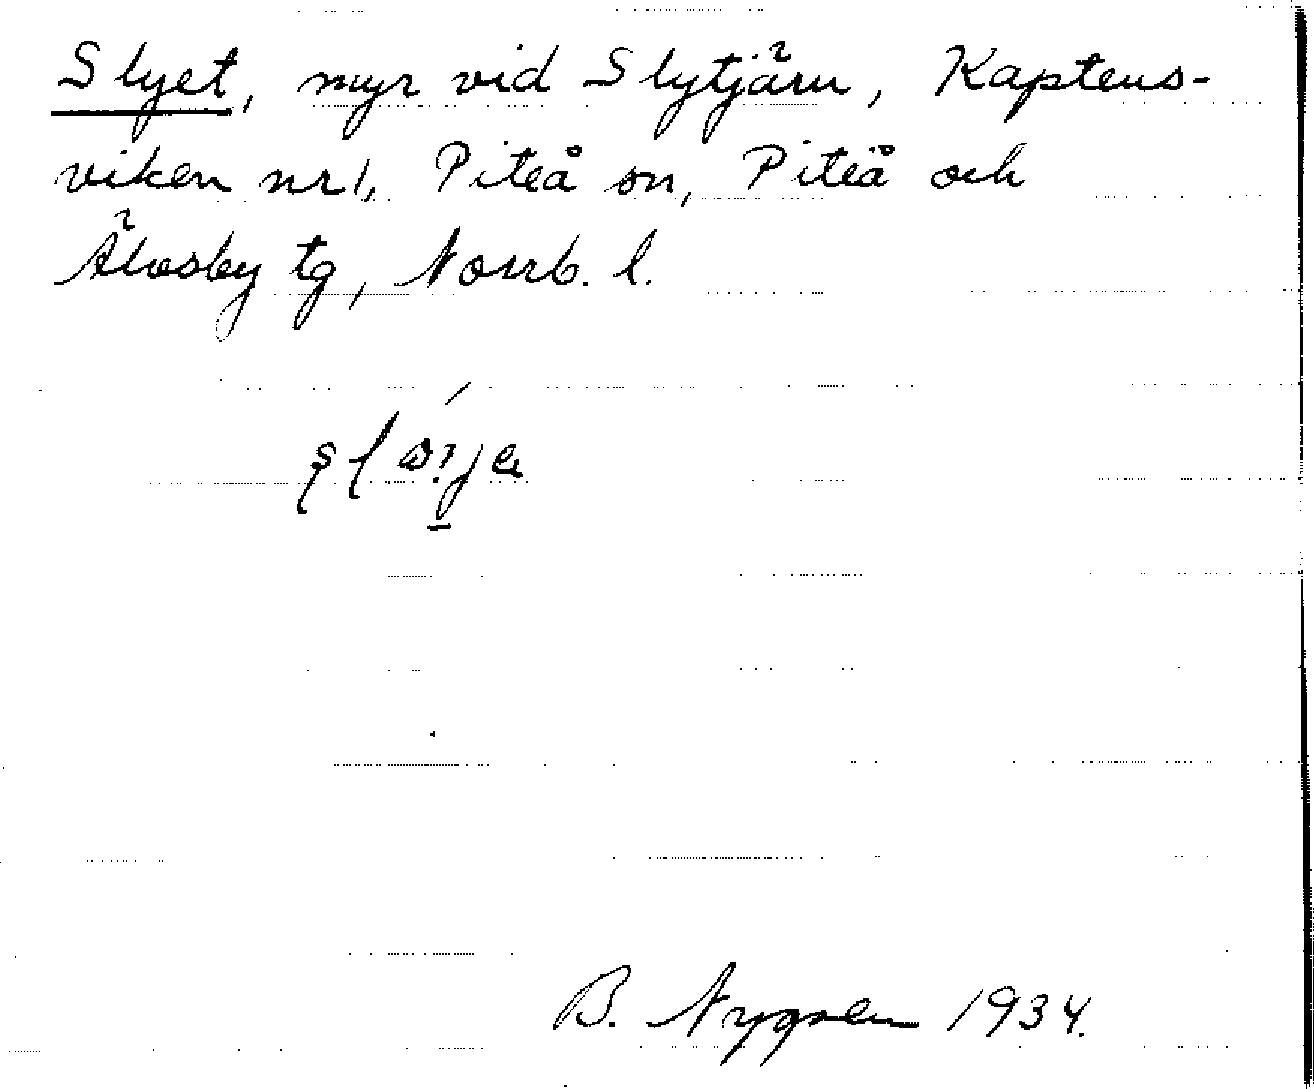 Slyet, myr vid Slytjärn, Kaptens-
viken nr 1, Piteå sn, Piteå och
Älvsby tg, Norrb. l.
B. Nygren 1934.